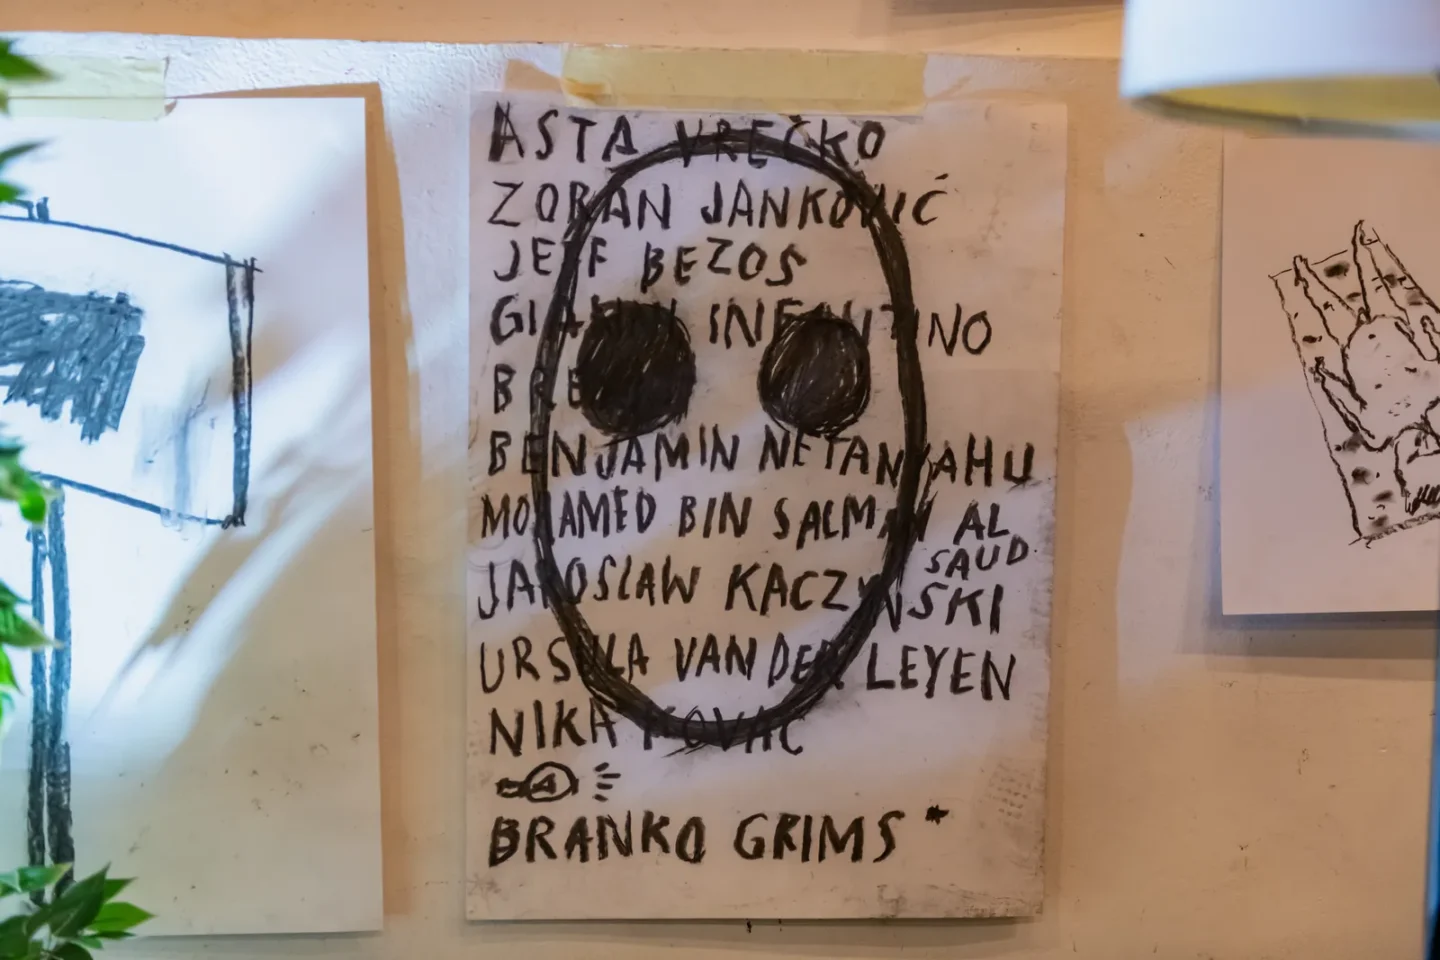 ASTA VREČKO
ZORAN JANKOVIĆ
JEFF BEZOS
GIANNI INFANTINO
BENJAMIN NETANYAHU
MOHAMED BIN SALMAN AL
SAUD
JAROSLAW KACZYNSKI
URSULA VAN DER LEYEN
NIKA KOVAČ
BRANKO GRIMS *